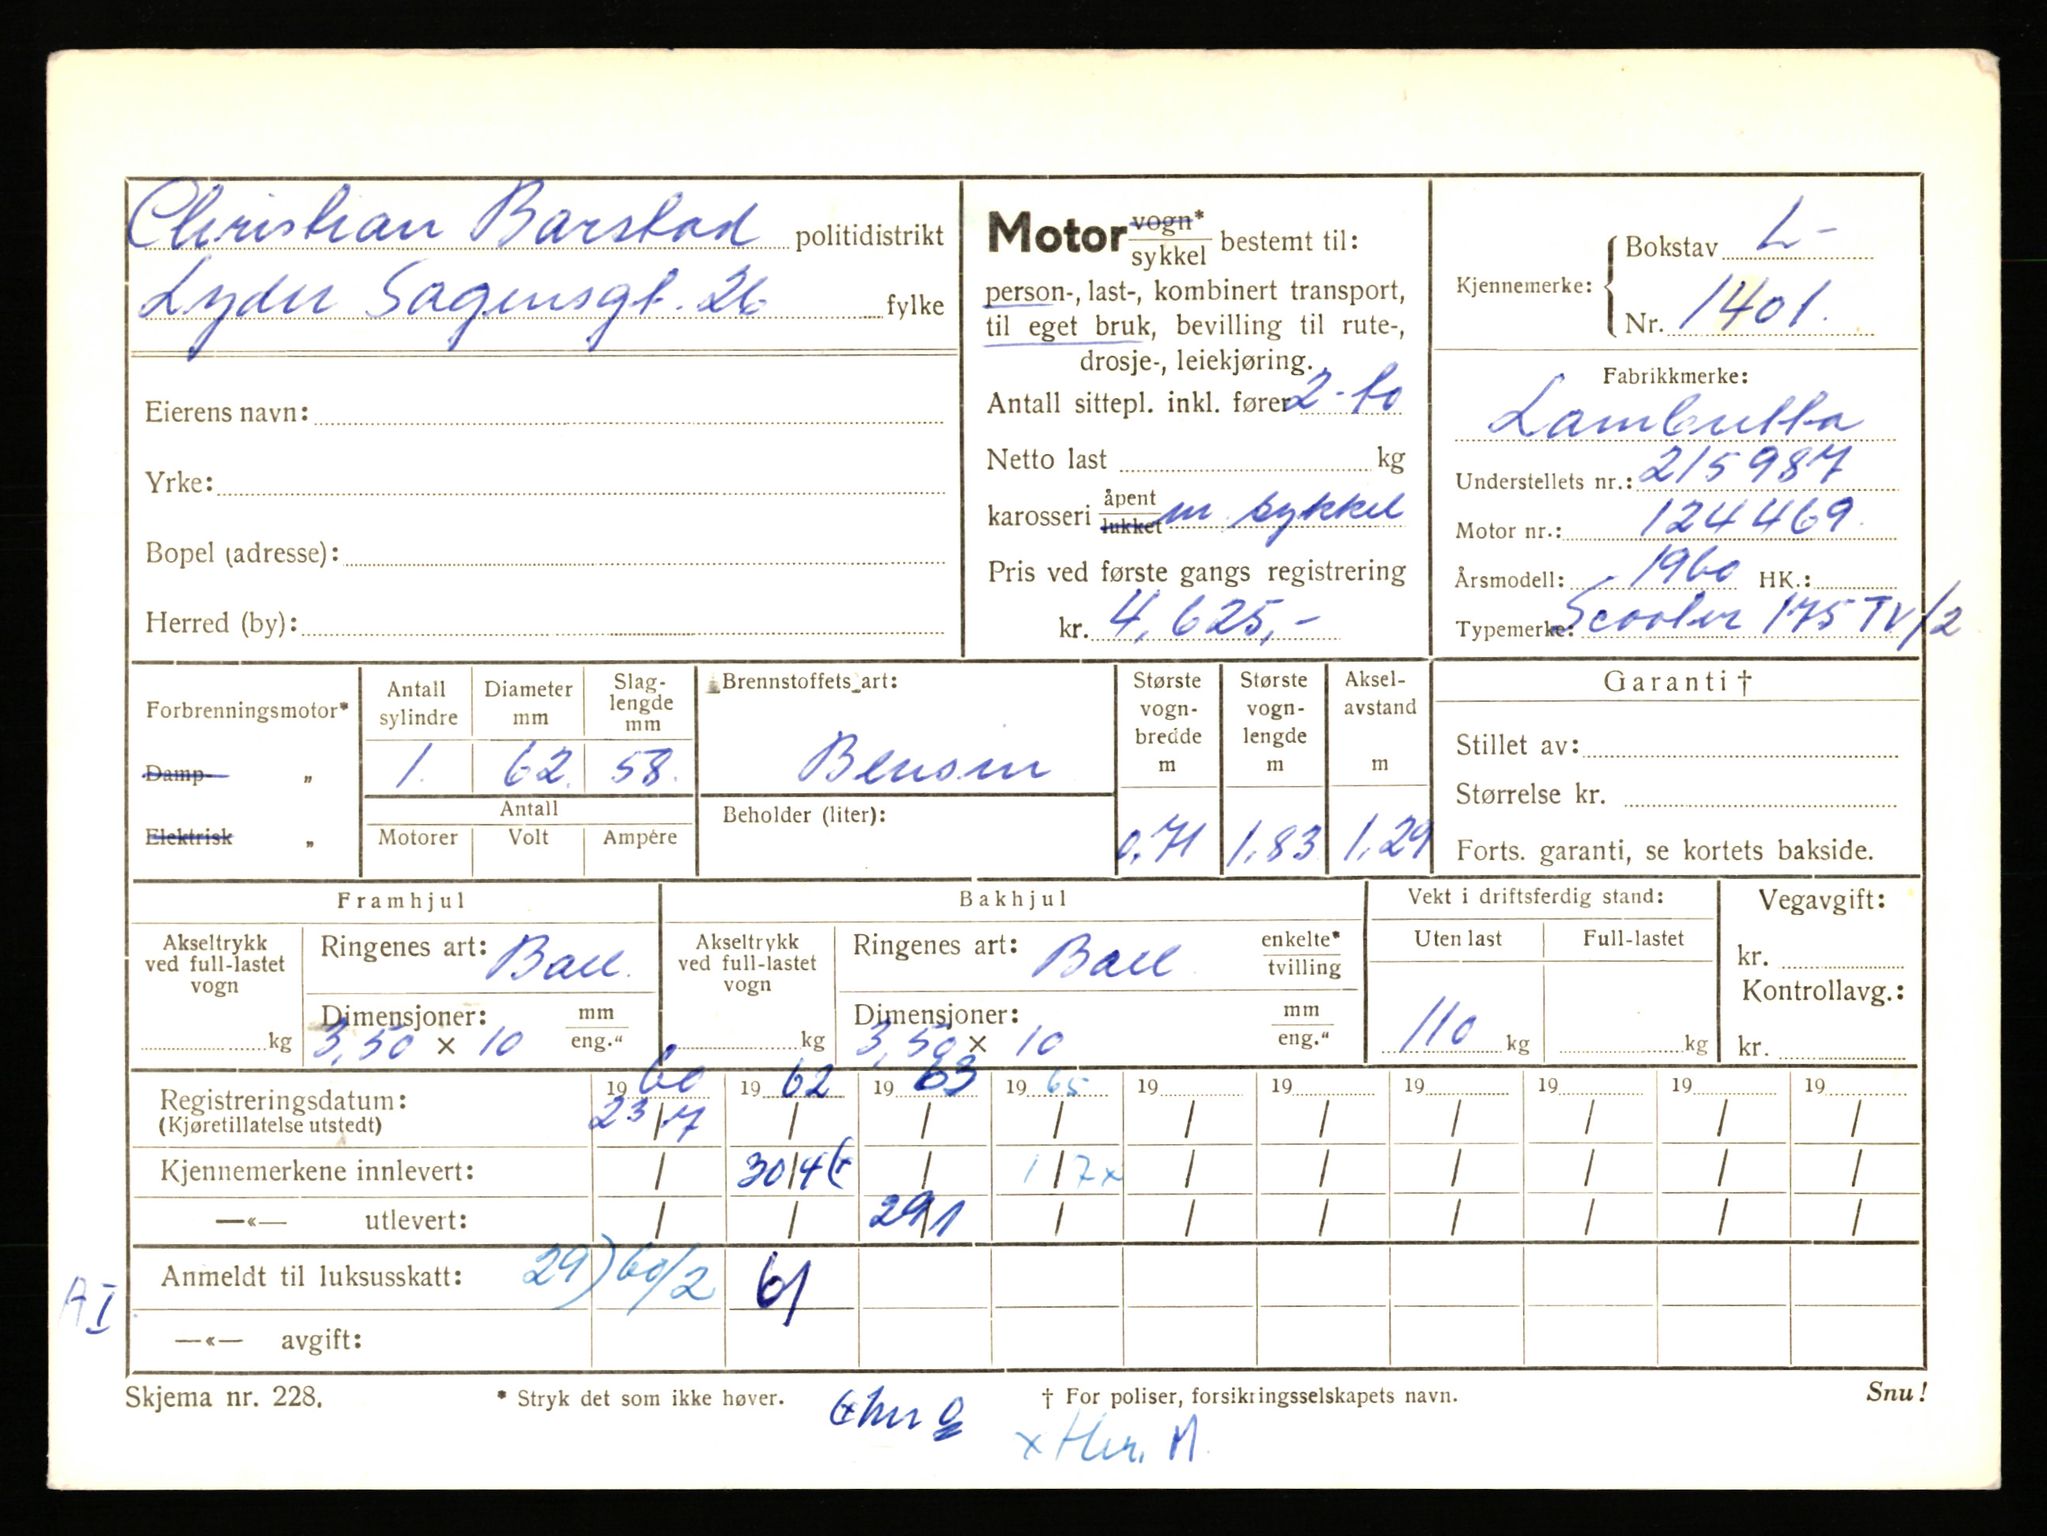 Christian Barstad politidistrikt
Lyder Sagensgt. 26 fylke
Eierens navn:
Yrke:
Bopel (adresse):
Herred (by):
Motor vogn* sykkel bestemt til:
person-, last-, kombinert transport,
til eget bruk, bevilling til rute-,
drosje-, leiekjøring.
Antall sittepl. inkl. fører 2-to
Netto last kg
karosseri åpent lukket m sykkel
Pris ved første gangs registrering
kr. 4.625,-
Kjennemerke: Bokstav L-
Nr. 1401.
Fabrikkmerke:
Lambretta
Understellets nr.: 215987
Motor nr.: 124469
Årsmodell: 1960 HK.:
Typemerke: Scooter 175 TV/2
Forbrenningsmotor*
Damp- „
Elektrisk „
Antall sylindre
Diameter mm
Slag-lengde mm
1. 62. 58.
Antall
Motorer Volt Ampére
Brennstoffets art:
Bensin
Beholder (liter):
Største vogn-bredde m
Største vogn-lengde m
Aksel-avstand m
0,71 1,83 1,29
Garanti †
Stillet av:
Størrelse kr.
Forts. garanti, se kortets bakside.
Framhjul
Akseltrykk ved full-lastet vogn
kg
Ringenes art: Ball.
Dimensjoner: mm
3,50 × 10 eng.“
Bakhjul
Akseltrykk ved full-lastet vogn
kg
Ringenes art: Ball enkelte* tvilling
Dimensjoner: mm
3,50 × 10 eng.“
Vekt i driftsferdig stand:
Uten last Full-lastet
110 kg kg
Vegavgift:
kr.
Kontrollavg.:
kr.
1960 1962 1963 1965 19 19 19 19 19 19
Registreringsdatum: 23/7 / / / / / / / / /
(Kjøretillatelse utstedt)
Kjennemerkene innlevert: / 30/4 / 1/7x / / / / / /
—«— utlevert: / / 29/1 / / / / / / /
Anmeldt til luksusskatt: 29) 60/2 61
A I
—«— avgift:
Skjema nr. 228. * Stryk det som ikke høver. † For poliser, forsikringsselskapets navn. Snu!
x Her. M.